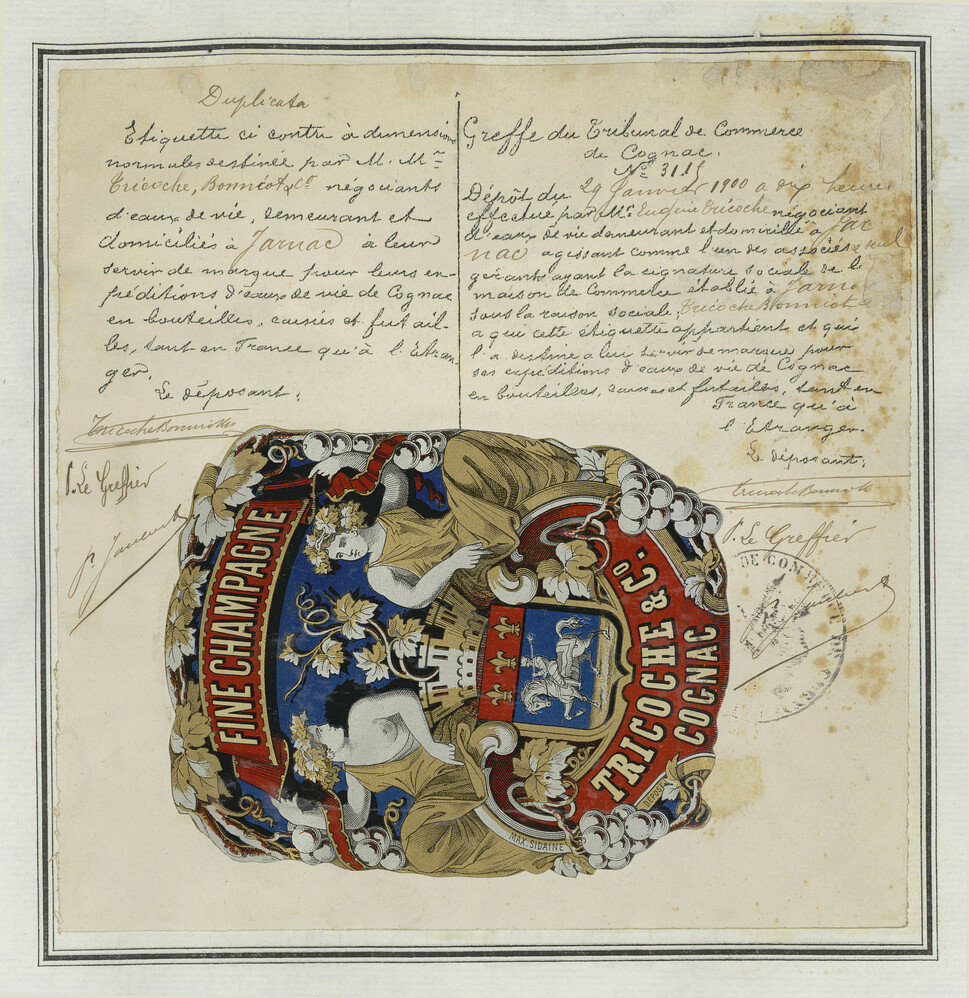 Duplicata
Etiquette ci contre à dimensions
normales destinée par M. Mrs
Tricoche, Bonniot & Co négociants
d'eaux de vie, demeurant et
domiciliés à Jarnac à leur
servir de marque pour leurs ex-
péditions d'eaux de vie de Cognac
en bouteilles, caisses et futail-
les, tant en France qu'à l'Etran-
ger.
Le déposant:
Tricoche Bonniot & Co
P. Le Greffier
Greffe du Tribunal de Commerce
de Cognac.
No 311
Dépôt du 29 Janvier 1900 a dix heures
effectué par Mr Eugène Tricoche négociant
d'eaux de vie demeurant et domicilié à Jar
nac agissant comme l'un des associés & seul
gérant ayant la signature sociale de la
maison de Commerce établie à Jarnac
sous la raison sociale, Tricoche Bonniot &
a qui cette étiquette appartient et qui
l'a destine a lui servir de marque pour
ses expéditions d'eaux de vie de Cognac
en bouteilles, caisses et futailles, tant en
France qu'à
l'Etranger.
Le déposant:
Tricoche Bonniot
P. Le Greffier
DE COMMERCE DE
FINE CHAMPAGNE
TRICOCHE & Co.
COGNAC
DÉPOSÉ
MAX. SIDAINE